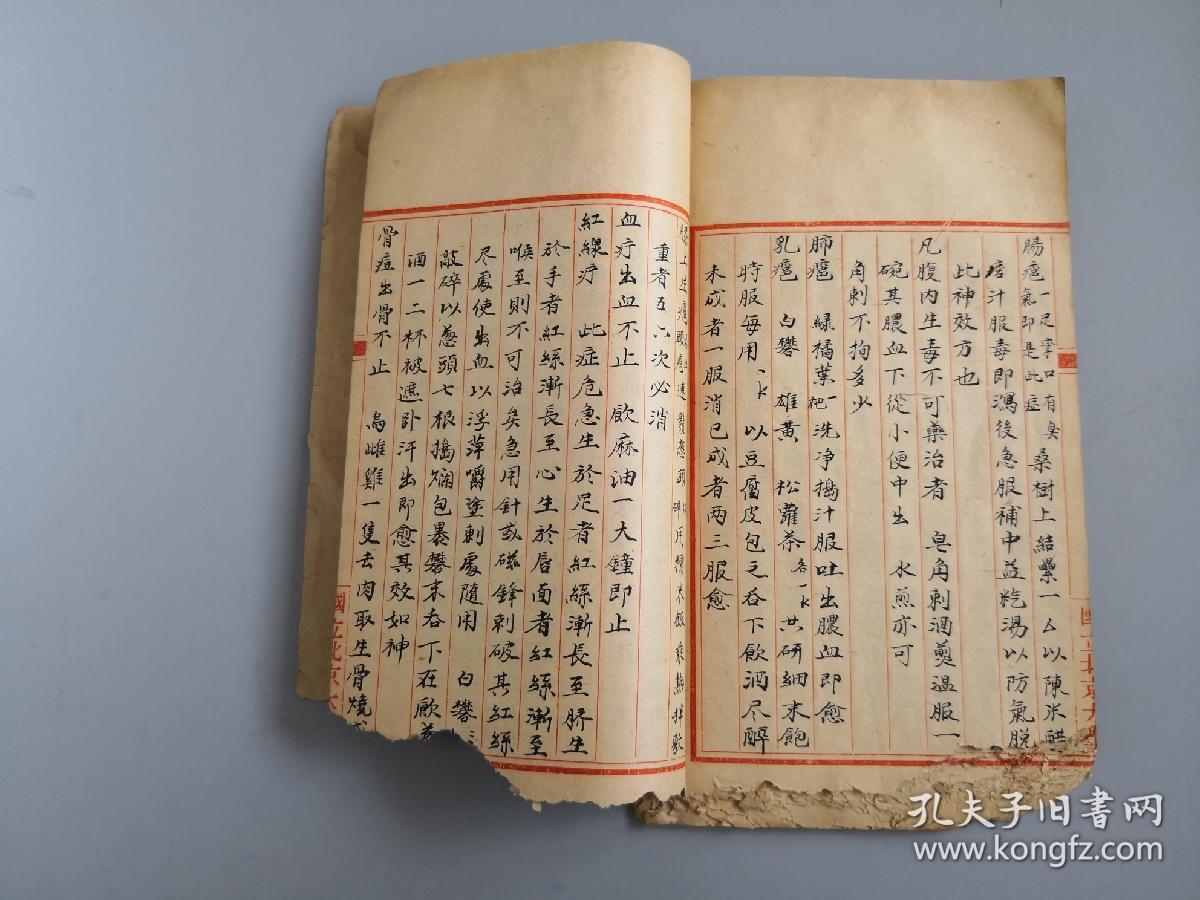 腸癰 一足拿口有臭氣即是此症 桑樹上結壘一厶以陳米醋
痞汁服毒即瀉後急服補中益氣湯以防氣脫
此神效方也
凡腹内生毒不可藥治者 皂角剌酒煎温服一
碗其膿血下從小便中出 水煎亦可
角剌不拘多少
肺癰 緑橘葉一把洗净搗汁服吐出膿血即愈
乳癰 白礬 雄黄 松蘿茶各一 共研細末飽
時服每用 以豆腐皮包之吞下飲酒尽醉
未成者一服消已成者两三服愈
重者五六次必消
血疔出血不止 飲麻油一大鐘即止
紅線疔 此症危急生於足者紅絲漸長至臍生
於手者紅絲漸長至心生於唇面者紅絲漸至
喉至則不可治矣急用針或磁鋒刺破其紅絲
尽處使出血以浮萍嚼塗刺處隨用 白礬
敲碎以葱頭七根搗爛包裹礬末吞下在飲
酒一二杯被遮卧汗出即愈其效如神
骨疽出骨不止 烏雌雞一隻去肉取生骨燒
國立北京大
孔夫子旧书网
www.kongfz.com